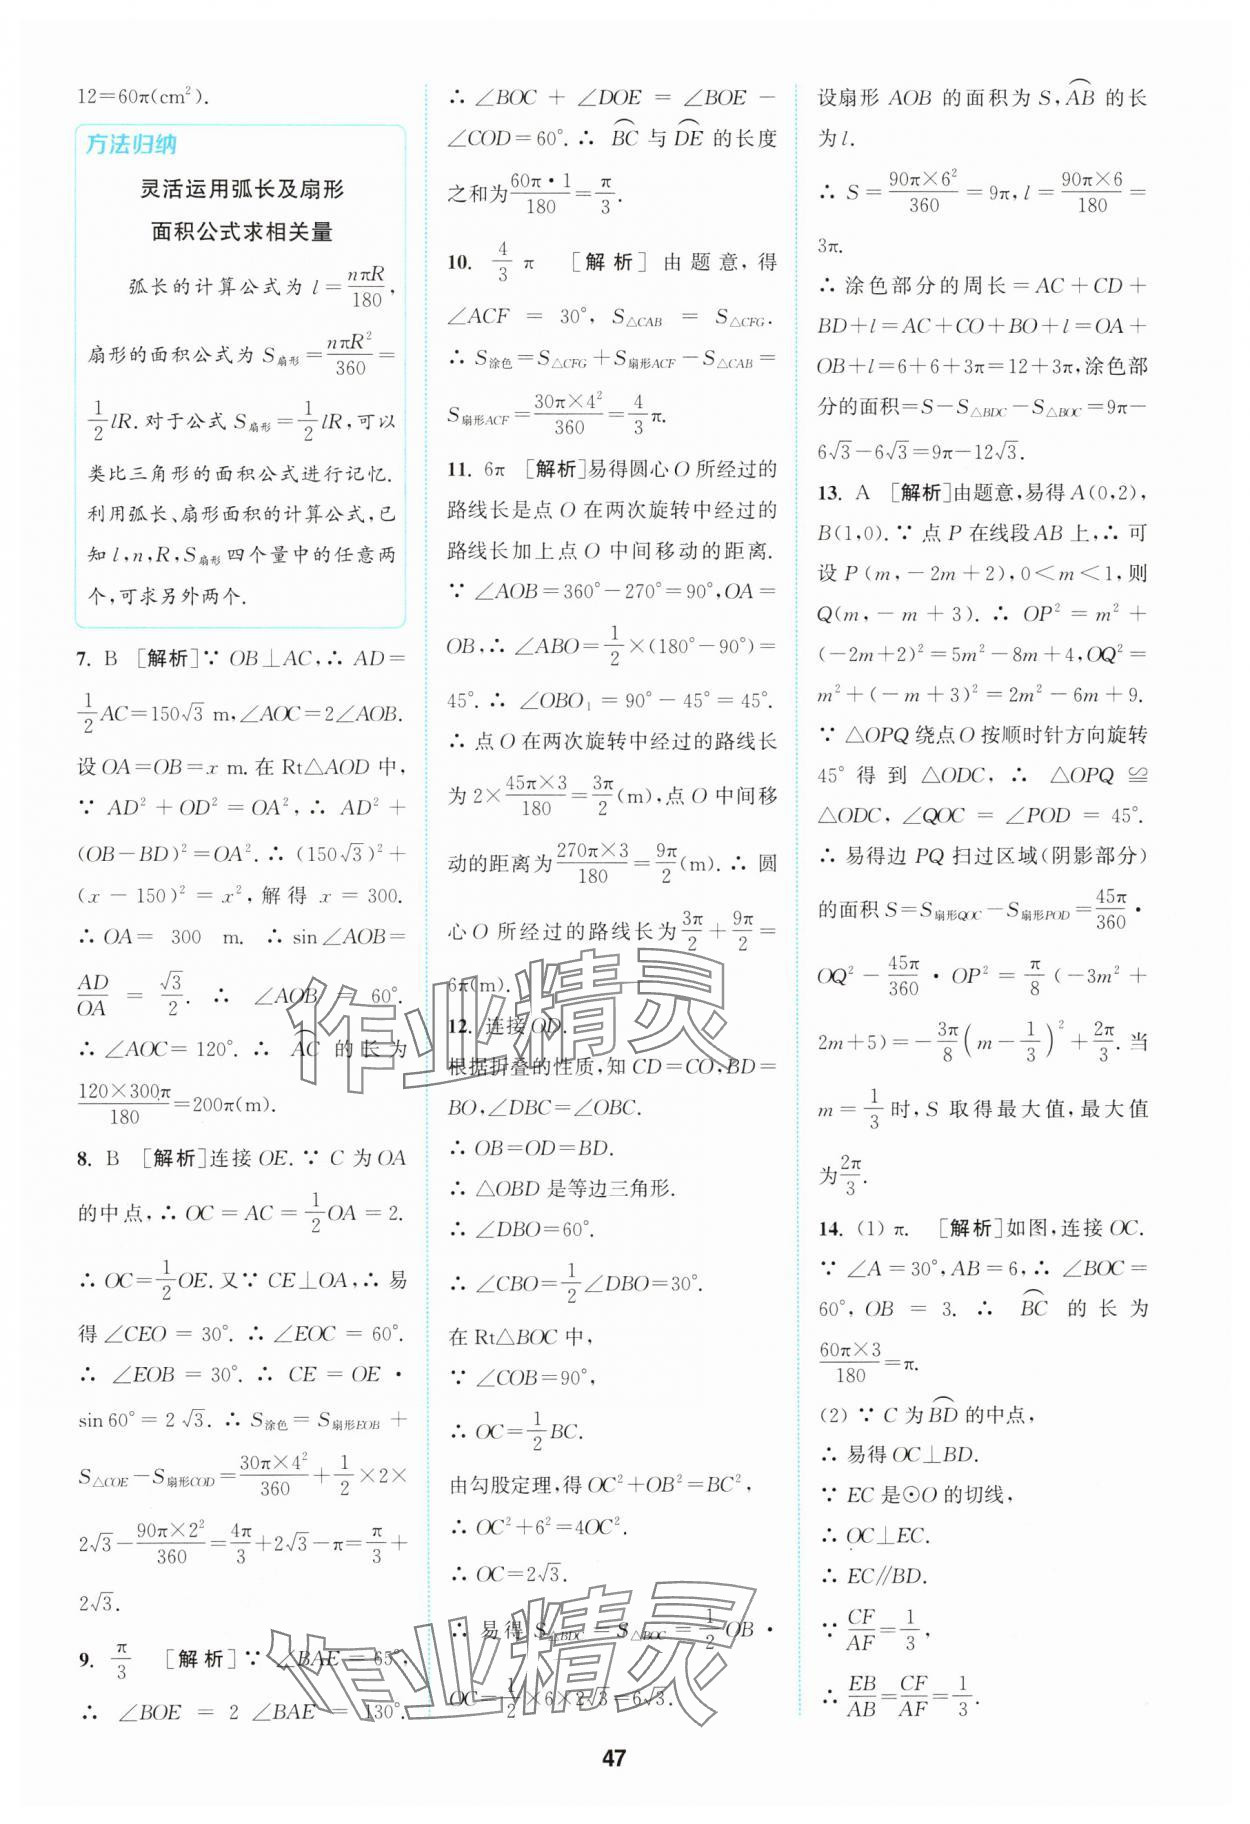 12=60π(cm²).
方法归纳
灵活运用弧长及扇形
面积公式求相关量
弧长的计算公式为 l=nπR/180,
扇形的面积公式为 S扇形=nπR²/360=
1/2 lR. 对于公式 S扇形=1/2 lR,可以
类比三角形的面积公式进行记忆.
利用弧长、扇形面积的计算公式,已
知 l,n,R,S扇形 四个量中的任意两
个,可求另外两个.
7. B [解析]∵ OB⊥AC,∴ AD=
1/2 AC=150√3 m,∠AOC=2∠AOB.
设 OA=OB=x m. 在 Rt△AOD 中,
∵ AD²+OD²=OA²,∴ AD²+
(OB-BD)²=OA². ∴ (150√3)²+
(x-150)²=x²,解得 x=300.
∴ OA=300 m. ∴ sin∠AOB=
AD/OA=√3/2. ∴ ∠AOB=60°.
∴ ∠AOC=120°. ∴ ⌒AC 的长为
120×300π/180=200π(m).
8. B [解析]连接 OE. ∵ C 为 OA
的中点,∴ OC=AC=1/2 OA=2.
∴ OC=1/2 OE. 又∵ CE⊥OA,∴ 易
得∠CEO=30°. ∴ ∠EOC=60°.
∴ ∠EOB=30°. ∴ CE=OE·
sin 60°=2√3. ∴ S涂色=S扇形EOB+
S△COE-S扇形COD=30π×4²/360+1/2×2×
2√3-90π×2²/360=4π/3+2√3-π=π/3+
2√3.
9. π/3 [解析]∵ ∠BAE=65°,
∴ ∠BOE=2∠BAE=130°.
∴ ∠BOC+∠DOE=∠BOE-
∠COD=60°. ∴ ⌒BC 与 ⌒DE 的长度
之和为 60π·1/180=π/3.
10. 4/3 π [解析]由题意,得
∠ACF=30°,S△CAB=S△CFG.
∴ S涂色=S△CFG+S扇形ACF-S△CAB=
S扇形ACF=30π×4²/360=4/3 π.
11. 6π [解析]易得圆心 O 所经过的
路线长是点 O 在两次旋转中经过的
路线长加上点 O 中间移动的距离.
∵ ∠AOB=360°-270°=90°,OA=
OB,∴ ∠ABO=1/2×(180°-90°)=
45°. ∴ ∠OBO₁=90°-45°=45°.
∴ 点 O 在两次旋转中经过的路线长
为 2×45π×3/180=3π/2(m),点 O 中间移
动的距离为 270π×3/180=9π/2(m). ∴ 圆
心 O 所经过的路线长为 3π/2+9π/2=
6π(m).
12. 连接 OD.
根据折叠的性质,知 CD=CO,BD=
BO,∠DBC=∠OBC.
∴ OB=OD=BD.
∴ △OBD 是等边三角形.
∴ ∠DBO=60°.
∴ ∠CBO=1/2∠DBO=30°.
在 Rt△BOC 中,
∵ ∠COB=90°,
∴ OC=1/2 BC.
由勾股定理,得 OC²+OB²=BC²,
∴ OC²+6²=4OC².
∴ OC=2√3.
∴ 易得 S△BDC=S△BOC=1/2 OB·
OC=1/2×6×2√3=6√3.
设扇形 AOB 的面积为 S,⌒AB 的长
为 l.
∴ S=90π×6²/360=9π,l=90π×6/180=
3π.
∴ 涂色部分的周长=AC+CD+
BD+l=AC+CO+BO+l=OA+
OB+l=6+6+3π=12+3π,涂色部
分的面积=S-S△BDC-S△BOC=9π-
6√3-6√3=9π-12√3.
13. A [解析]由题意,易得 A(0,2),
B(1,0). ∵ 点 P 在线段 AB 上,∴ 可
设 P(m,-2m+2),0<m<1,则
Q(m,-m+3). ∴ OP²=m²+
(-2m+2)²=5m²-8m+4,OQ²=
m²+(-m+3)²=2m²-6m+9.
∵ △OPQ 绕点 O 按顺时针方向旋转
45°得到△ODC,∴ △OPQ≌
△ODC,∠QOC=∠POD=45°.
∴ 易得边 PQ 扫过区域(阴影部分)
的面积 S=S扇形QOC-S扇形POD=45π/360·
OQ²-45π/360·OP²=π/8(-3m²+
2m+5)=-3π/8(m-1/3)²+2π/3. 当
m=1/3时,S 取得最大值,最大值
为 2π/3.
14. (1) π. [解析]如图,连接 OC.
∵ ∠A=30°,AB=6,∴ ∠BOC=
60°,OB=3. ∴ ⌒BC 的长为
60π×3/180=π.
(2) ∵ C 为⌒BD 的中点,
∴ 易得 OC⊥BD.
∵ EC 是⊙O 的切线,
∴ OC⊥EC.
∴ EC∥BD.
∵ CF/AF=1/3,
∴ EB/AB=CF/AF=1/3.
作业精灵
作业精灵
47